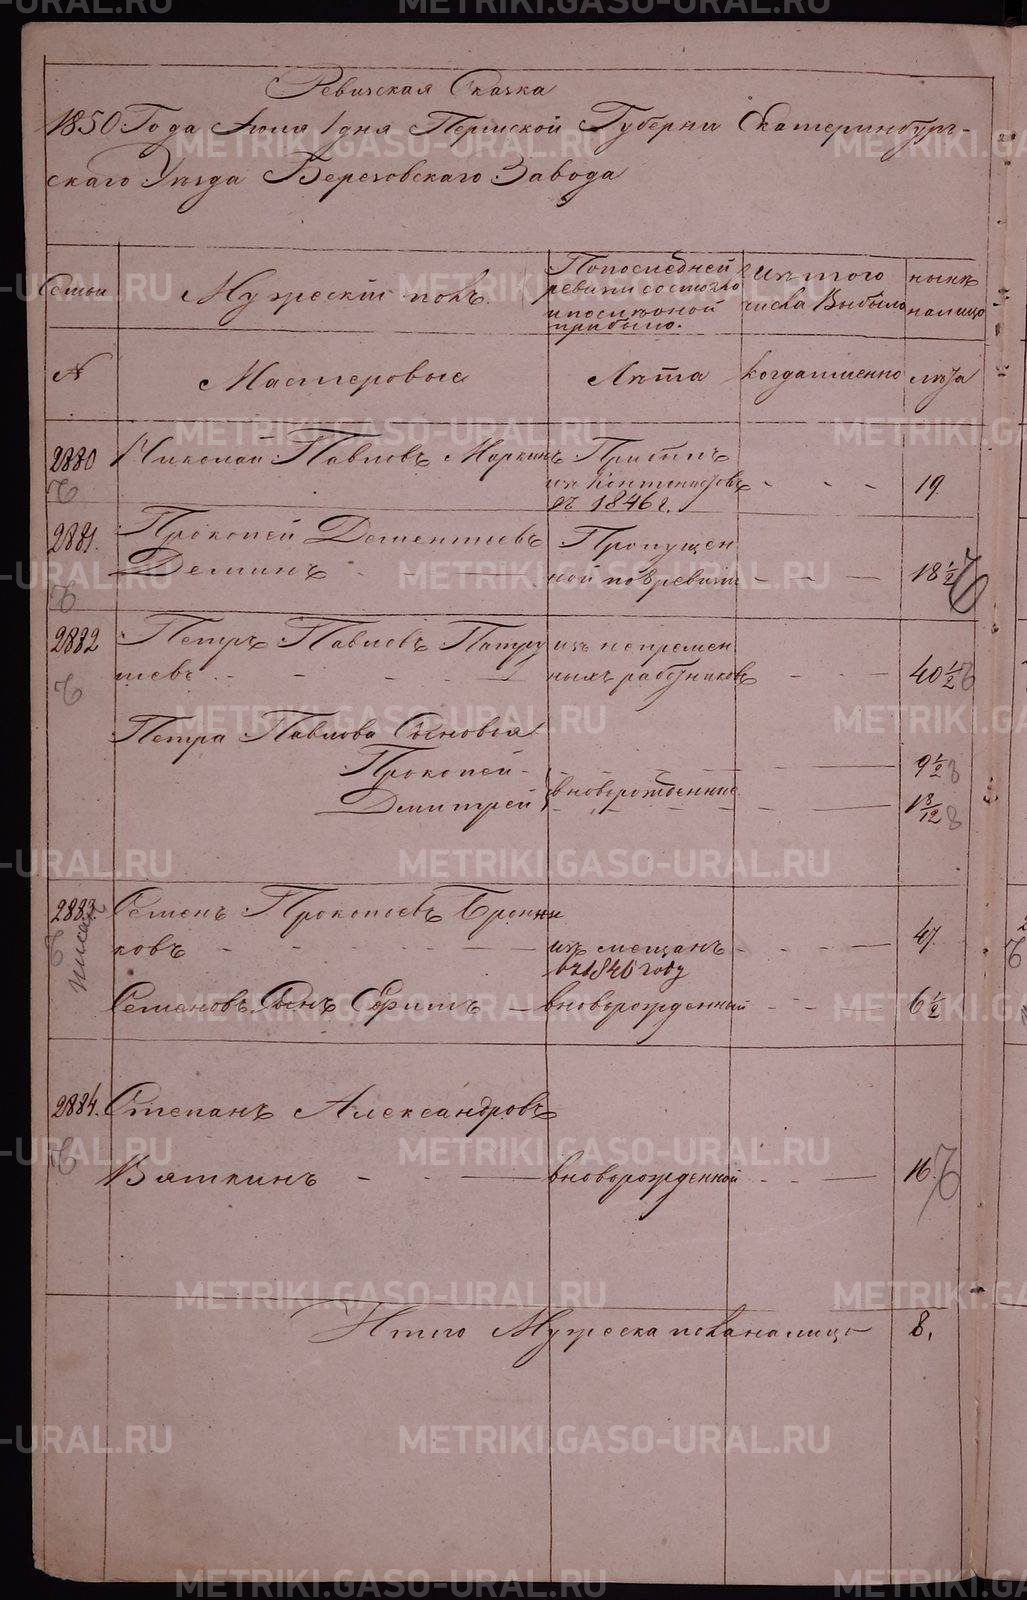 Ревизская Сказка
1850 Года Июля 1 дня Пермской Губернии Екатеринбург-
скаго Уезда Березовскаго Завода
Семьи
Мужеский полъ.
По последней
ревизии состояло
и после оной
прибыло.
Изъ того
числа Выбыло
ныне
налицо
№
Мастеровые
Лѣта
Когда именно
лѣта
2880 Николай Павловъ Маркинъ
въ 1846 г. - - - 19
2881. Прокопей Дементьевъ Пропущен
Деминъ - ной по 8 ревизии - - - 18 1/2
2882 Петръ Павловъ Патру изъ непремен
шевъ - - - ныхъ работниковъ - - - 40 1/2
Петра Павлова Сыновья
Прокопей - 9 1/2
вноворожденные
Дмитрей 1 8/12
2883. Семенъ Прокопьевъ Бронни
ковъ - - - изъ мещанъ - - - 47
въ 1846 году
Семеновъ Сынъ Ефимъ - вноворожденный - - - 6 1/2
2884. Степанъ Александровъ
Вяткинъ - - - вноворожденной - - - 16
Итого Мужеска пола налицо 8.
METRIKI.GASO-URAL.RU